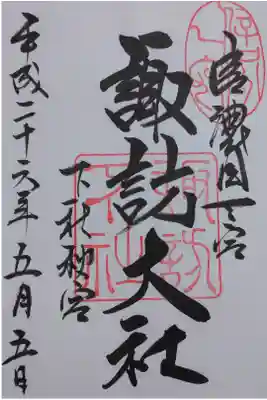 信濃國一宮
諏訪大社
下社秋宮
平成二十六年五月五日